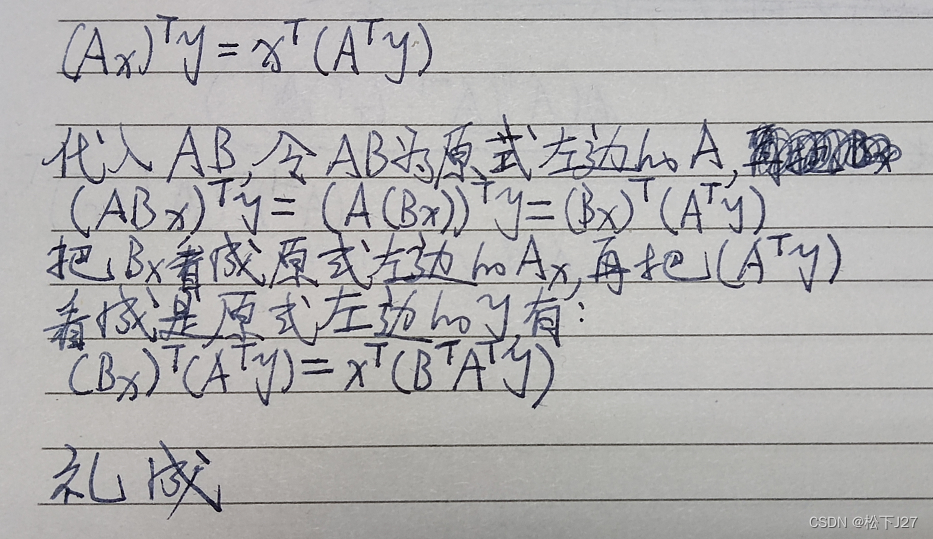 (Ax)ᵀy = xᵀ(Aᵀy)
代入 AB, 令 AB为原式左边的 A,
(ABx)ᵀy = (A(Bx))ᵀy = (Bx)ᵀ(Aᵀy)
把 Bx看成原式左边的Ax,再把(Aᵀy)
看成是原式左边的y有:
(Bx)ᵀ(Aᵀy) = xᵀ(BᵀAᵀy)
礼成
CSDN @松下J27